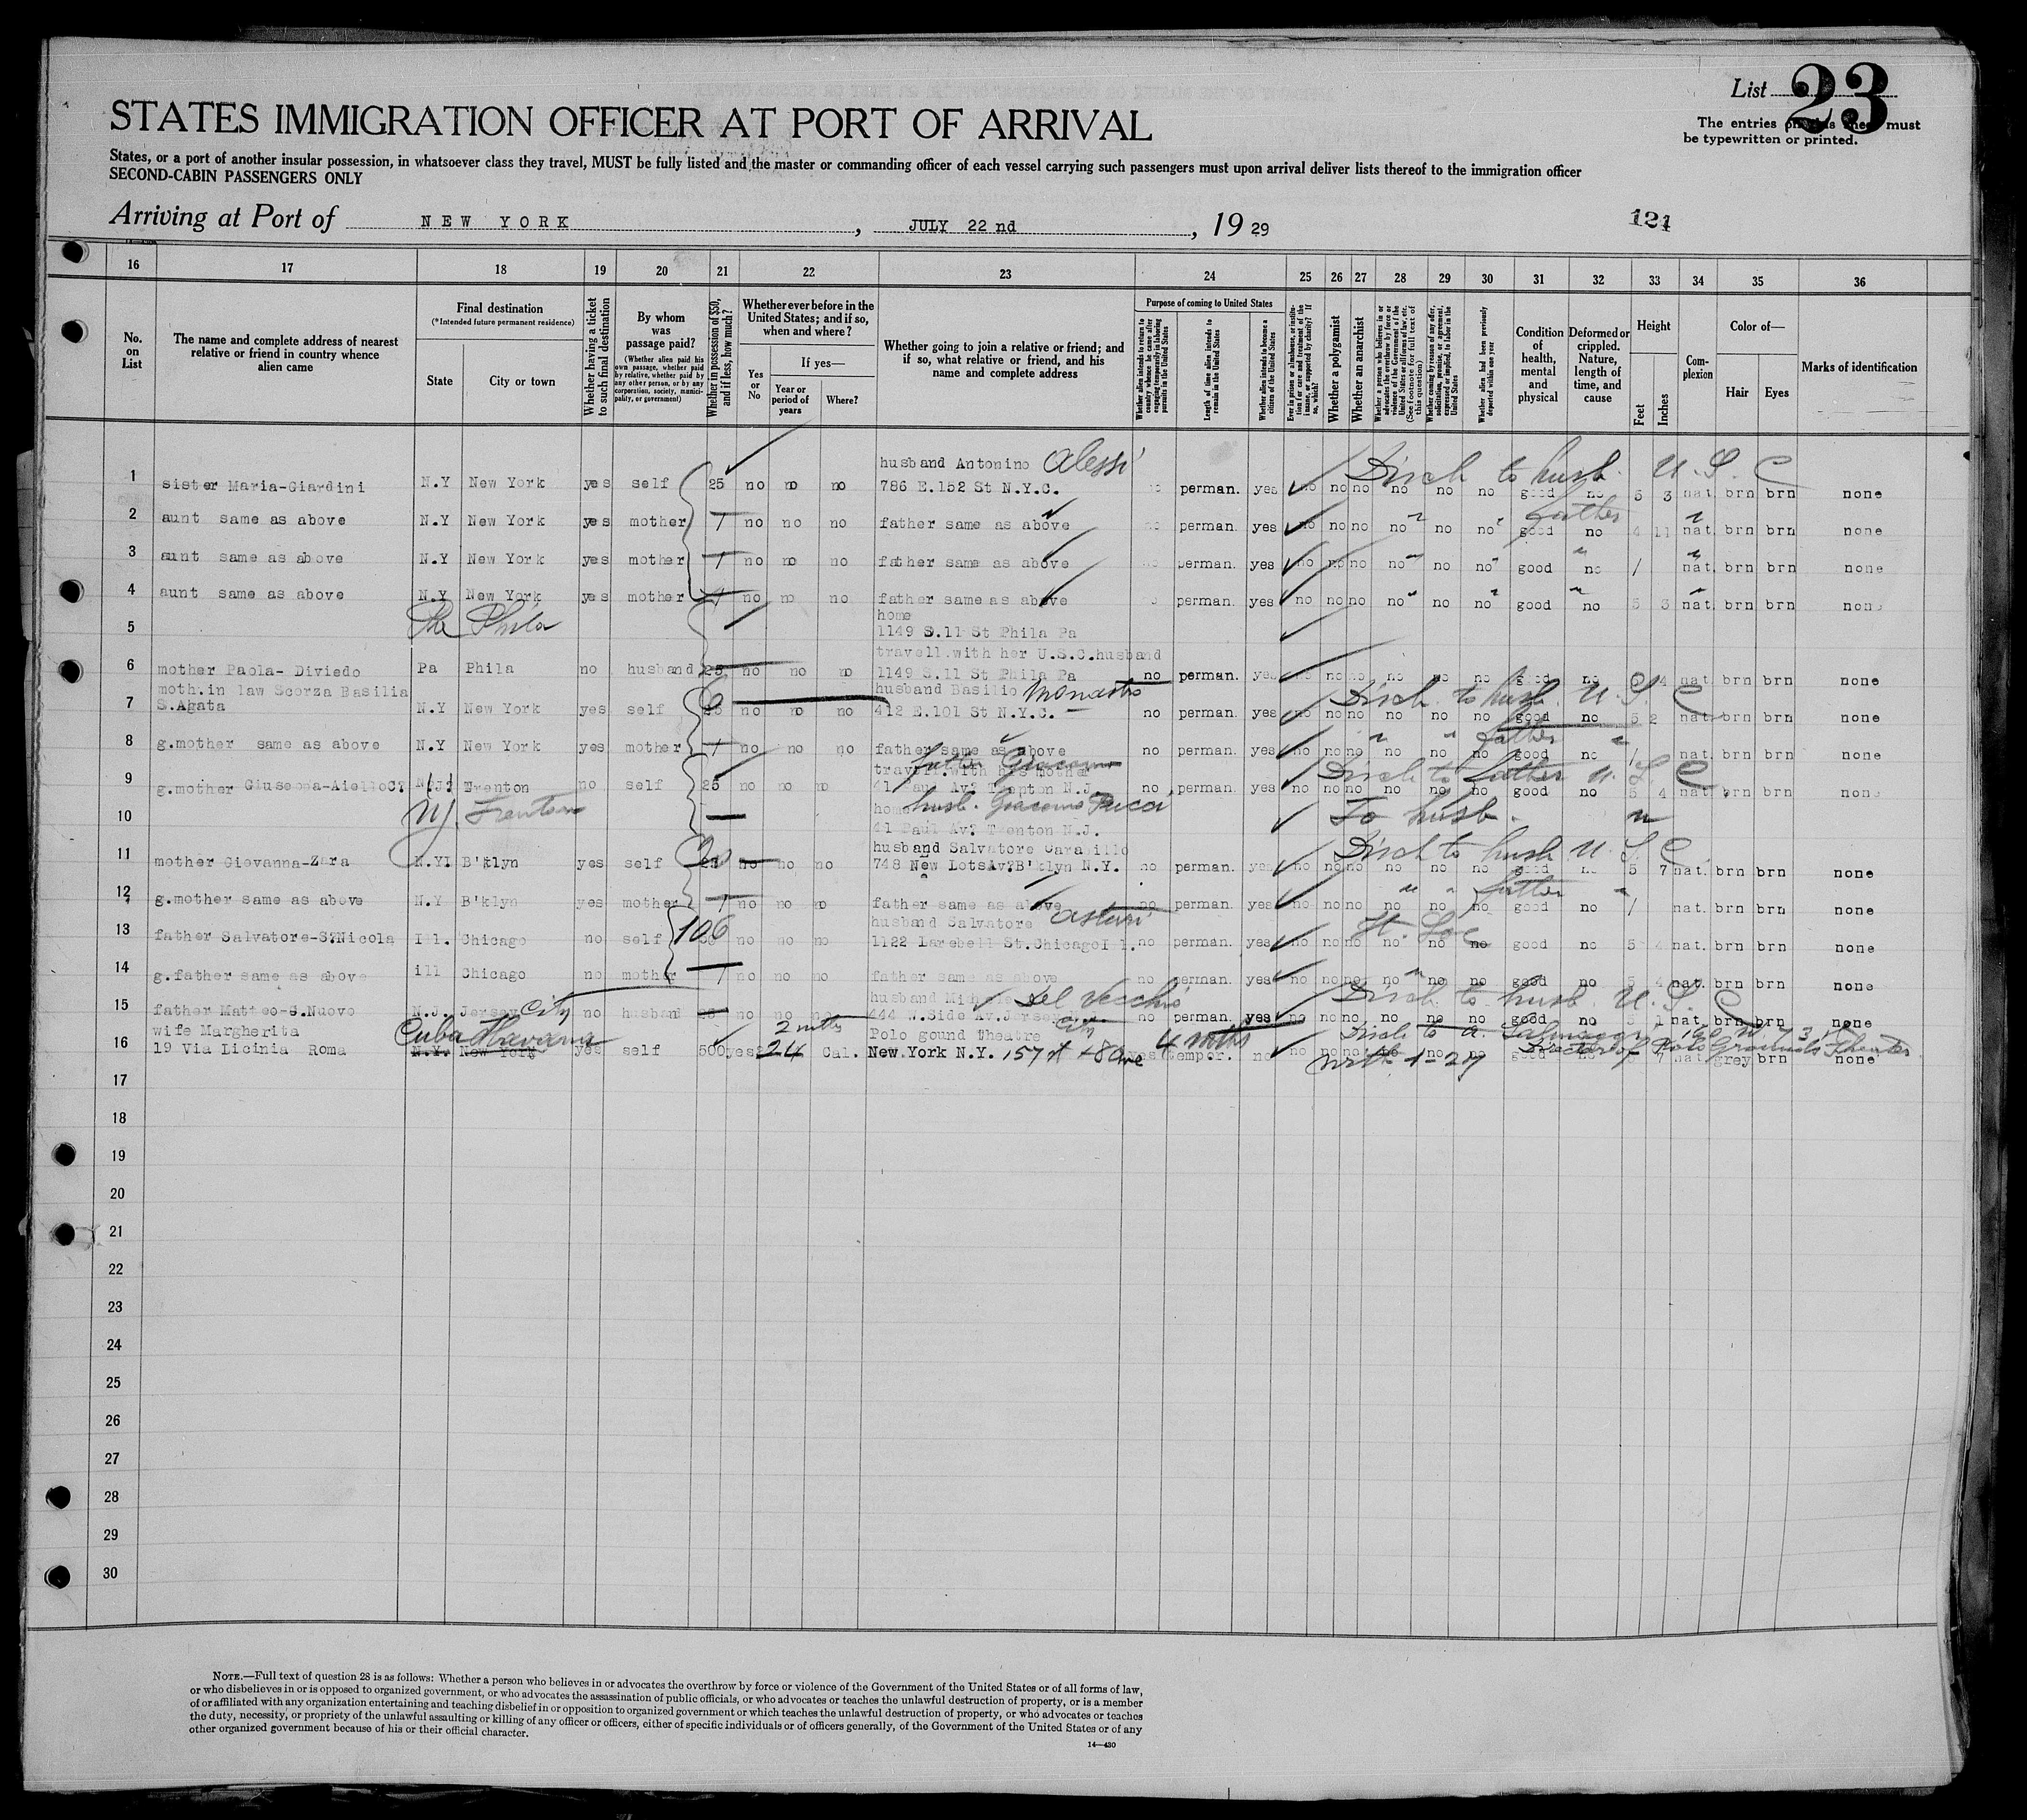 List 23
The entries on this sheet must
be typewritten or printed.
STATES IMMIGRATION OFFICER AT PORT OF ARRIVAL
States, or a port of another insular possession, in whatsoever class they travel, MUST be fully listed and the master or commanding officer of each vessel carrying such passengers must upon arrival deliver lists thereof to the immigration officer
SECOND-CABIN PASSENGERS ONLY
Arriving at Port of NEW YORK, JULY 22 nd, 19 29
121
16 17 18 19 20 21 22 23 24 25 26 27 28 29 30 31 32 33 34 35 36
No. on List
The name and complete address of nearest relative or friend in country whence alien came
Final destination
(*Intended future permanent residence)
State
City or town
Whether having a ticket to such final destination
By whom was passage paid?
(Whether alien paid his own passage, whether paid by relative, whether paid by any other person, or by any corporation, society, municipality, or government)
Whether in possession of $50, and if less, how much?
Whether ever before in the United States; and if so, when and where?
Yes or No
If yes—
Year or period of years
Where?
Whether going to join a relative or friend; and if so, what relative or friend, and his name and complete address
Purpose of coming to United States
Whether alien intends to return to country whence he came after engaging temporarily in laboring pursuits in the United States
Length of time alien intends to remain in the United States
Whether alien intends to become a citizen of the United States
Ever in prison or almshouse, or institution for care and treatment of the insane, or supported by charity? If so, which?
Whether a polygamist
Whether an anarchist
Whether a person who believes in or advocates the overthrow by force or violence of the Government of the United States or all forms of law, etc. (See footnote for full text of this question)
Whether coming by reason of any offer, solicitation, promise, or agreement, expressed or implied, to labor in the United States
Whether alien had been previously deported within one year
Condition of health, mental and physical
Deformed or crippled. Nature, length of time, and cause
Height
Feet
Inches
Complexion
Color of—
Hair
Eyes
Marks of identification
husband Antonino Alessi
Disch to husb. U.S.C
1 sister Maria-Giardini N.Y New York yes self 25 no no no 786 E.152 St N.Y.C. perman. yes no no no no no no good no 5 3 nat. brn brn none
father
2 aunt same as above N.Y New York yes mother / no no no father same as above perman. yes no no no no no no good no 4 11 nat. brn brn none
3 aunt same as above N.Y New York yes mother / no no no father same as above perman. yes no no no no no no good no / nat. brn brn none
4 aunt same as above N.Y New York yes mother / no no no father same as above perman. yes no no no no no no good no 5 3 nat. brn brn none
Phila home
5 1149 S.11 St Phila Pa
travell.with her U.S.C.husband
6 mother Paola- Diviedo Pa Phila no husband 25 no no no 1149 S.11 St Phila Pa no perman. yes no no no no no no good no 4 nat. brn brn none
moth.in law Scorza Basilia husband Basilio Monastro Disch. to husb. U.S.C
7 S.Agata N.Y New York yes self 25 no no no 412 E.101 St N.Y.C. no perman. yes no no no no no no good no 5 2 nat. brn brn none
father
8 g.mother same as above N.Y New York yes mother / no no no father same as above no perman. yes no no no no no no good no / nat. brn brn none
father Giacomo
travell.with his mother
Disch to father U.S.C
9 g.mother Giuseppa-Aiello N.J. Trenton no self 25 no no no 41 Paul Av? Trenton N.J. no perman. yes no no no no no no good no 5 4 nat. brn brn none
NJ. Trenton home husb. Giacomo Pucci To husb.
10 41 Paul Av? Trenton N.J.
husband Salvatore Carabillo
Disch to husb U.S.C
11 mother Giovanna-Zara N.Y. B'klyn yes self 25 no no no 748 New LotsAv?B'klyn N.Y. no perman. yes no no no no no no good no 5 7 nat. brn brn none
father
12 g.mother same as above N.Y B'klyn yes mother / no no no father same as above no perman. yes no no no no no no good no / nat. brn brn none
106 husband Salvatore Asturi
13 father Salvatore-S?Nicola Il. Chicago no self no no no 1122 Larebell St.Chicago Il. no perman. yes no no no no no no good no 5 4 nat. brn brn none
14 g.father same as above ill Chicago no mother / no no no father same as above no perman. yes no no no no no no good no 5 4 nat. brn brn none
husband Michele Del Vecchio
Disch to husb U.S.C
15 father Matteo-S.Nuovo N.J. Jersey City no husband no no no 444 W.Side Av.Jersey City no perman. yes no no no no no no good no 5 1 nat. brn brn none
wife Margherita Cuba Havana 2 mths Polo gound Theatre 4 mths
Disch to A. Salmaggi
Director of Polo Grounds Theater
16 19 Via Licinia Roma N.Y. New York yes self 500 yes 24 Cal. New York N.Y. 157 st + 8 Ave tempor. no 7 nat. grey brn none
17
18
19
20
21
22
23
24
25
26
27
28
29
30
NOTE.—Full text of question 28 is as follows: Whether a person who believes in or advocates the overthrow by force or violence of the Government of the United States or of all forms of law,
or who disbelieves in or is opposed to organized government, or who advocates the assassination of public officials, or who advocates or teaches the unlawful destruction of property, or is a member
of or affiliated with any organization entertaining and teaching disbelief in or opposition to organized government or which teaches the unlawful destruction of property, or who advocates or teaches
the duty, necessity, or propriety of the unlawful assaulting or killing of any officer or officers, either of specific individuals or of officers generally, of the Government of the United States or of any
other organized government because of his or their official character.
14—430